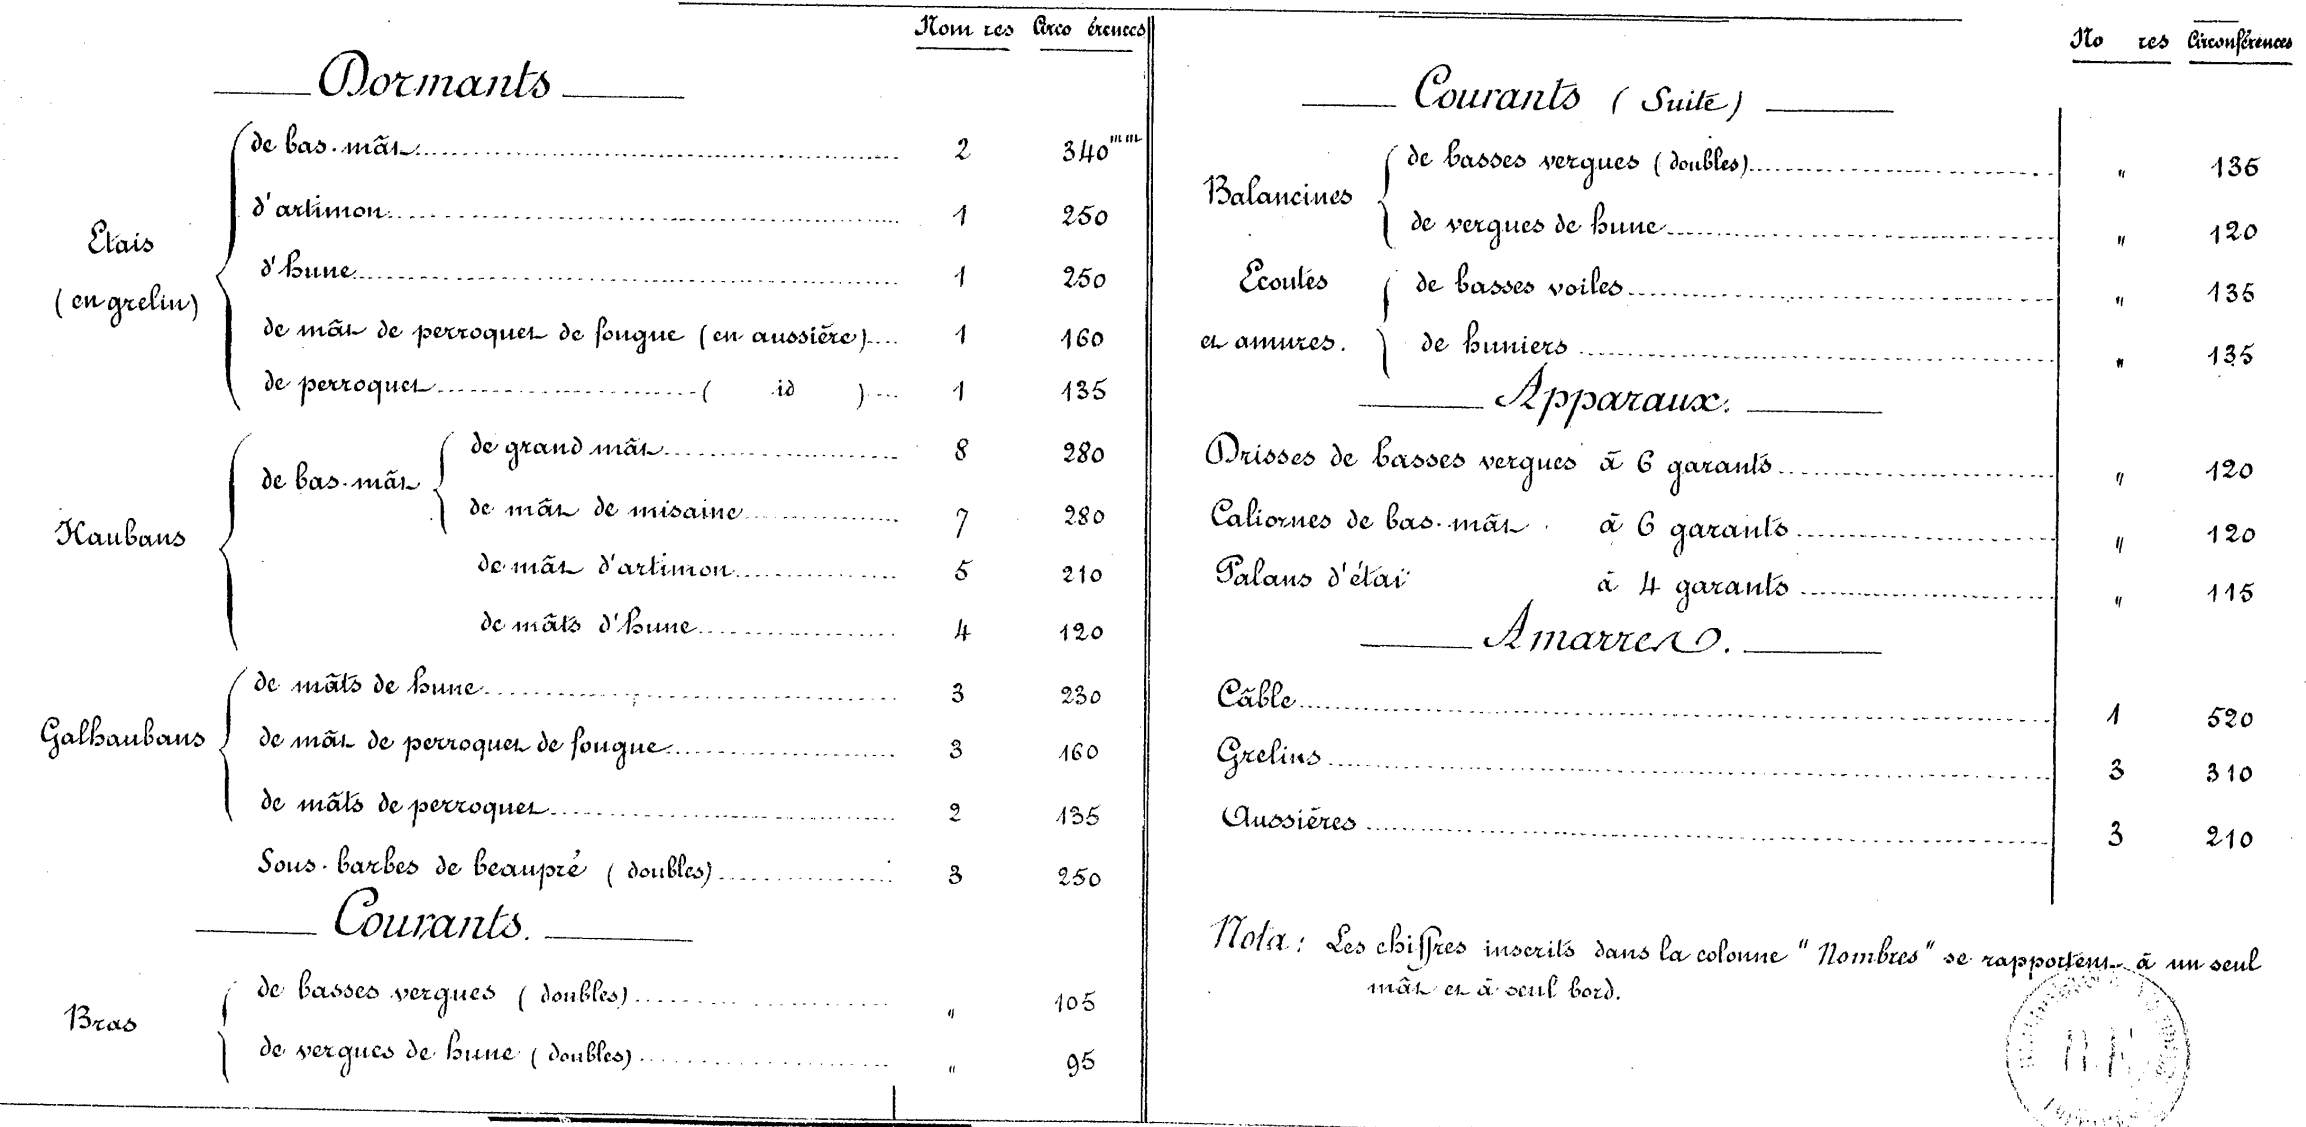 Nom res Circo érences
Dormants
Etais
(en grelin)
de bas-mât 2 340mm
d'artimon 1 250
d'hune 1 250
de mât de perroquet de fougue (en aussière) 1 160
de perroquet ( id ) 1 135
Haubans
de bas-mât
de grand mât 8 280
de mât de misaine 7 280
de mât d'artimon 5 210
de mâts d'hune 4 120
Galhaubans
de mâts de hune 3 230
de mât de perroquet de fougue 3 160
de mâts de perroquet 2 135
Sous-barbes de beaupré (doubles) 3 250
Courants.
Bras
de basses vergues (doubles) " 105
de vergues de hune (doubles) " 95
No res Circonférences
Courants (Suite)
Balancines
de basses vergues (doubles) " 135
de vergues de hune " 120
Ecoutes
et amures.
de basses voiles " 135
de huniers " 135
Apparaux.
Drisses de basses vergues à 6 garants " 120
Caliornes de bas-mât à 6 garants " 120
Palans d'étai à 4 garants " 115
Amarres.
Câble 1 520
Grelins 3 310
Aussières 3 210
Nota: Les chiffres inscrits dans la colonne "Nombres" se rapportent à un seul
mât et à seul bord.